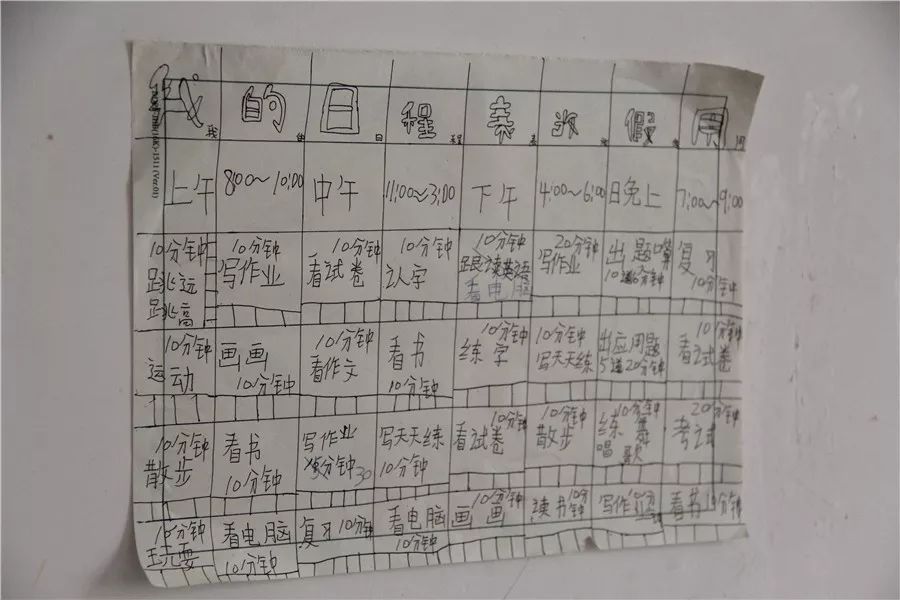 我 的 日 程 表 放 假 用
上午 8:00~10:00 中午 11:00~3:00 下午 4:00~6:00 日免上 7:00~9:00
10分钟 10分钟 10分钟 10分钟 10分钟 20分钟 出题口算 复习
跳远 写作业 看试卷 认字 跟读英语 写作业 10道6分钟 10分钟
跳高 看电脑
10分钟 画画 10分钟 看书 10分钟 10分钟 出应用题 10分钟
运动 10分钟 看作文 10分钟 练字 写天天练 5道20分钟 看试卷
10分钟 看书 写作业 写天天练 10分钟 10分钟 10分钟 20分钟
散步 10分钟 分钟30 10分钟 看试卷 散步 练舞 考试
唱歌
10分钟 看电脑 复习10分钟 看电脑 10分钟 读书10分钟 写作业 看书10分钟
玩耍 10分钟 10分钟 画画